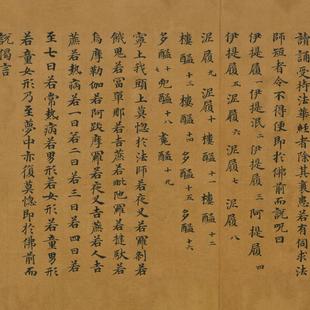 讀誦受持法華經者除其衰患若有伺求法
師短者令不得便即於佛前而說呪曰
伊提履一伊提泯二伊提履三阿提履四
伊提履五泥履六泥履七泥履八
泥履九泥履十樓醯十一樓醯十二
樓醯十三樓醯十四多醯十五多醯十六
多醯十七兜醯十八㝹醯十九
寧上我頭上莫惱於法師若夜叉若羅剎若
餓鬼若富單那若吉蔗若毗陀羅若揵馱若
烏摩勒伽若阿跋摩羅若夜叉吉蔗若人吉
蔗若熱病若一日若二日若三日若四日若
至七日若常熱病若男形若女形若童男形
若童女形乃至夢中亦復莫惱即於佛前而
說偈言